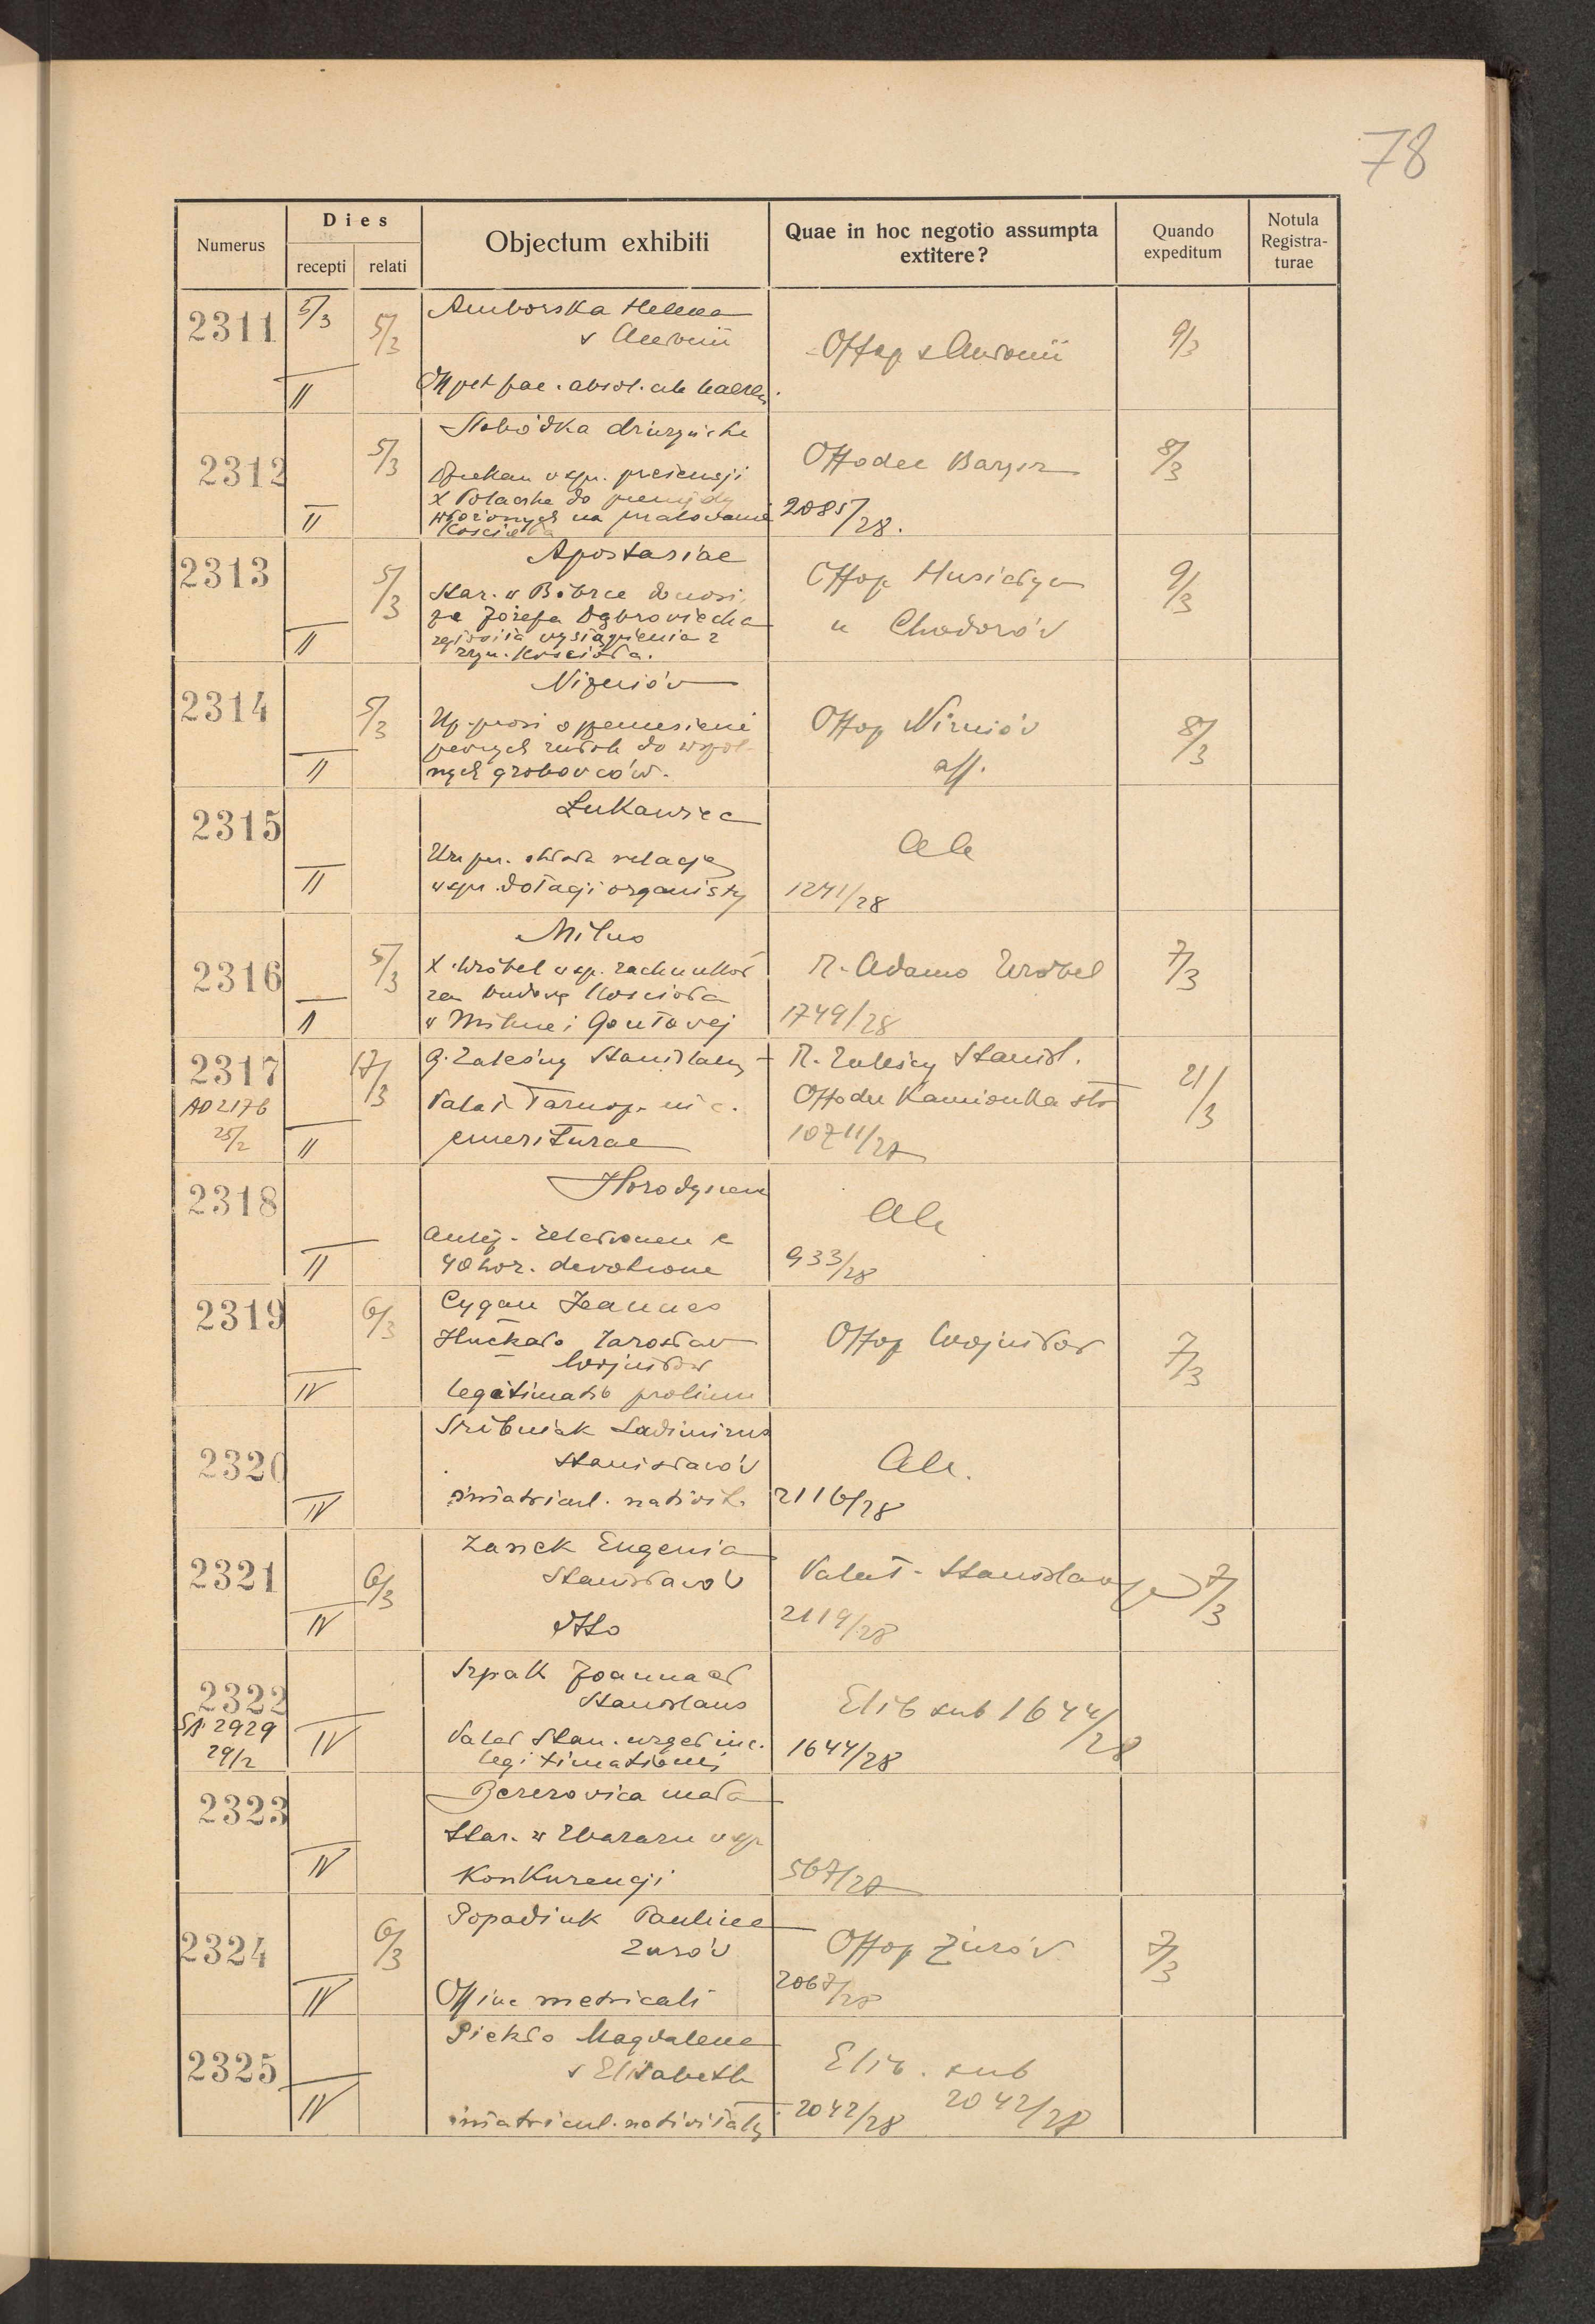 78
Numerus
Dies
recepti relati
Objectum exhibiti
Quae in hoc negotio assumpta
extitere?
Quando
expeditum
Notula
Registra-
turae
2311 5/3 5/3 II
Amborska Helena
s Antonii
Off pet fac. absol. ab haeresi
Offop s Antonii
9/3
2312 5/3 II
Dziekan w spr. pretensji
X Polaczka do pieniędzy
włożonych na malowanie
Kościoła
2085/28.
8/3
2313 5/3 II
Apostasiae
Star. w Bóbrce donosi,
że Józefa Dąbrowiecka
zgłosiła wystąpienie z
rzym. Kościoła.
Offop Husiatyn
u Chodorów
9/3
2314 5/3 II
Niżniów
Up. prosi o przeniesienie
pewnych zwłok do wspól-
nych grobowców.
Offop Niżniów
aff.
8/3
2315 II
Łukawiec
Urz par. składa relację
w spr. dotacji organisty
Ala
1241/28
2316 5/3 II
Milno
X. Wróbel w sp. rachunków
za budowę Kościoła
w Milnie i Gontowej
R. Adamo Wróbel
1749/28
7/3
2317 17/3
AD 2176
25/2 II
G. Zaleśny Stanislaus
Palat Tarnop. in c.
emeriturae
R. Zaleśny Stanisl.
Offodec Kamionka str
10711/27
21/3
2318 II
relationem e
40 hor. devotione
Ala
933/28
2319 6/3 IV
Cygan Joannes
Huckało Jarosław
Wojniłów
legitimatio prolium
Offop Wojniłów
7/3
2320 IV
Stribniak Ladimirus
Stanisławów
imatricul. nativit.
Ala.
2116/28
2321 6/3 IV
Zanek Eugenia
Stanisławów
dtto
Palat. Stanislaop
2119/28
7/3
2322
SA 2929
29/2 IV
Szpak Joanna et
Stanislaus
Palat Stan. urget in c.
legitimationis
Elib sub 1644/28
1644/28
2323 IV
Berezowica mała
Star. w Zbarażu w sp.
Konkurencji
567/27
2324 6/3 IV
Popadiuk Paulina
Żurów
Off in c metricali
Offop Żurów
2067/28
7/3
2325 IV
Piekło Magdalena
s Elisabeth
imatricul. nativitatis
Elib. sub
2042/28
2042/28